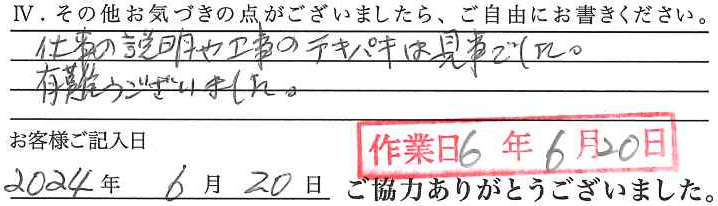 Ⅳ．その他お気づきの点がございましたら、ご自由にお書きください。
仕事の説明や工事のテキパキは見事でした。
有難うございました。
お客様ご記入日
作業日6年6月20日
2024年 6月 20日
ご協力ありがとうございました。